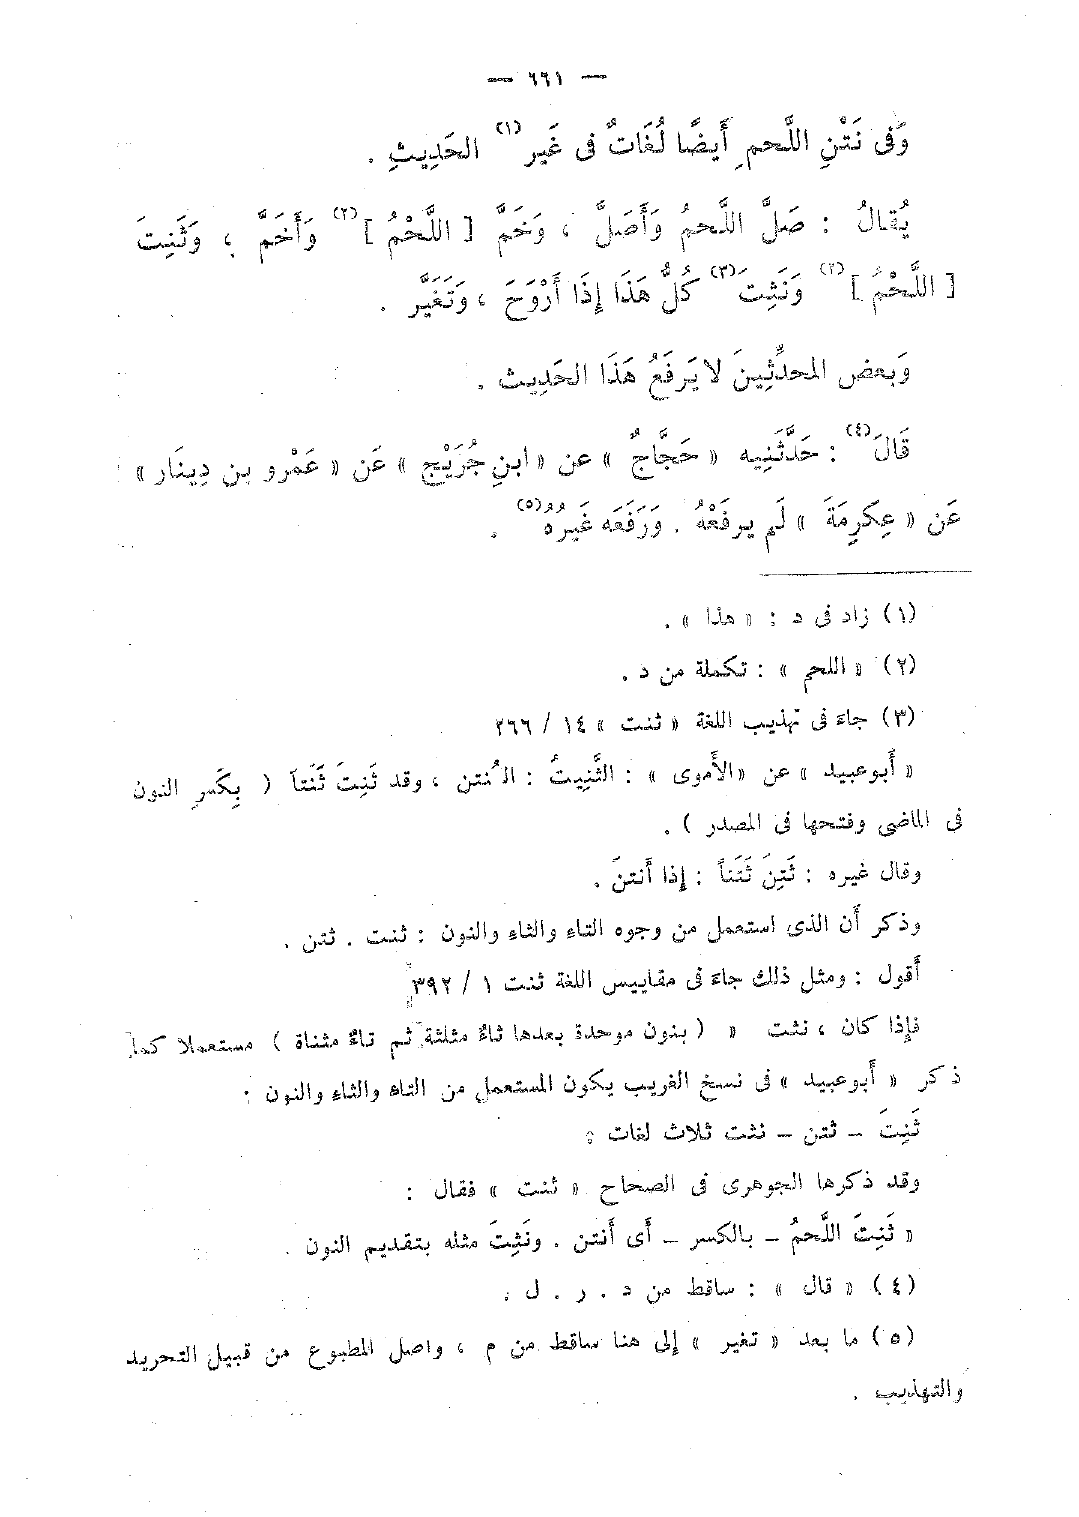 — ٦٦١ —
وَفى نَتْنِ اللَّحمِ أَيضًا لُغَاتٌ فى غَير (١) الحَدِيثِ .
يُقالُ : صَلَّ اللَّحمُ وَأَصَلَّ ، وَخَمَّ [ اللَّحْمُ ] (٢) وَأَخَمَّ ، وَثَنِتَ
[ اللَّحْمُ ] (٢) وَنَثِتَ (٣) كُلُّ هَذَا إِذَا أَرْوَحَ ، وَتَغَيَّر .
وَبعض المحدِّثِينَ لا يَرفَعُ هَذَا الحَدِيث .
قَالَ (٤) : حَدَّثَنِيه « حَجَّاجٌ » عن « ابنِ جُرَيْجٍ » عَن « عَمْرو بن دِينَار »
عَن « عِكرِمَةَ » لَم يرفَعْهُ . وَرَفَعَه غَيرُهُ (٥) .
(١) زاد فى د : « هذا » .
(٢) « اللحم » : تكملة من د .
(٣) جاءَ فى تهذيب اللغة « ثنت » ١٤ / ٢٦٦
« أَبو عبيد » عن « الأَموى » : الثَّنِيتُ : المُنتن ، وقد ثَنِتَ ثَنَتاً ( بِكَسرِ النون
فى الماضى وفتحها فى المصدر ) .
وقال غيره : ثَتِنَ ثَتَناً : إِذا أَنتنَ .
وذكر أَن الذى استعمل من وجوه التاءِ والثاءِ والنون : ثنت . ثتن .
أَقول : ومثل ذلك جاءَ فى مقاييس اللغة ثنت ١ / ٣٩٢
فإِذا كان ، نثت « ( بنون موحدة بعدها ثاءٌ مثلثة ثم تاءٌ مثناة ) مستعملا كما
ذكر « أَبو عبيد » فى نسخ الغريب يكون المستعمل من التاءِ والثاءِ والنون :
ثَنِتَ – ثتن – نثت ثلاث لغات :
وقد ذكرها الجوهرى فى الصحاح « ثنت » فقال :
« ثَنِتَ اللَّحمُ – بالكسر – أَى أَنتن . ونَثِتَ مثله بتقديم النون .
(٤) « قال » : ساقط من د . ر . ل .
(٥) ما بعد « تغير » إِلى هنا ساقط من م ، واصل المطبوع من قبيل التجريد
والتهذيب .